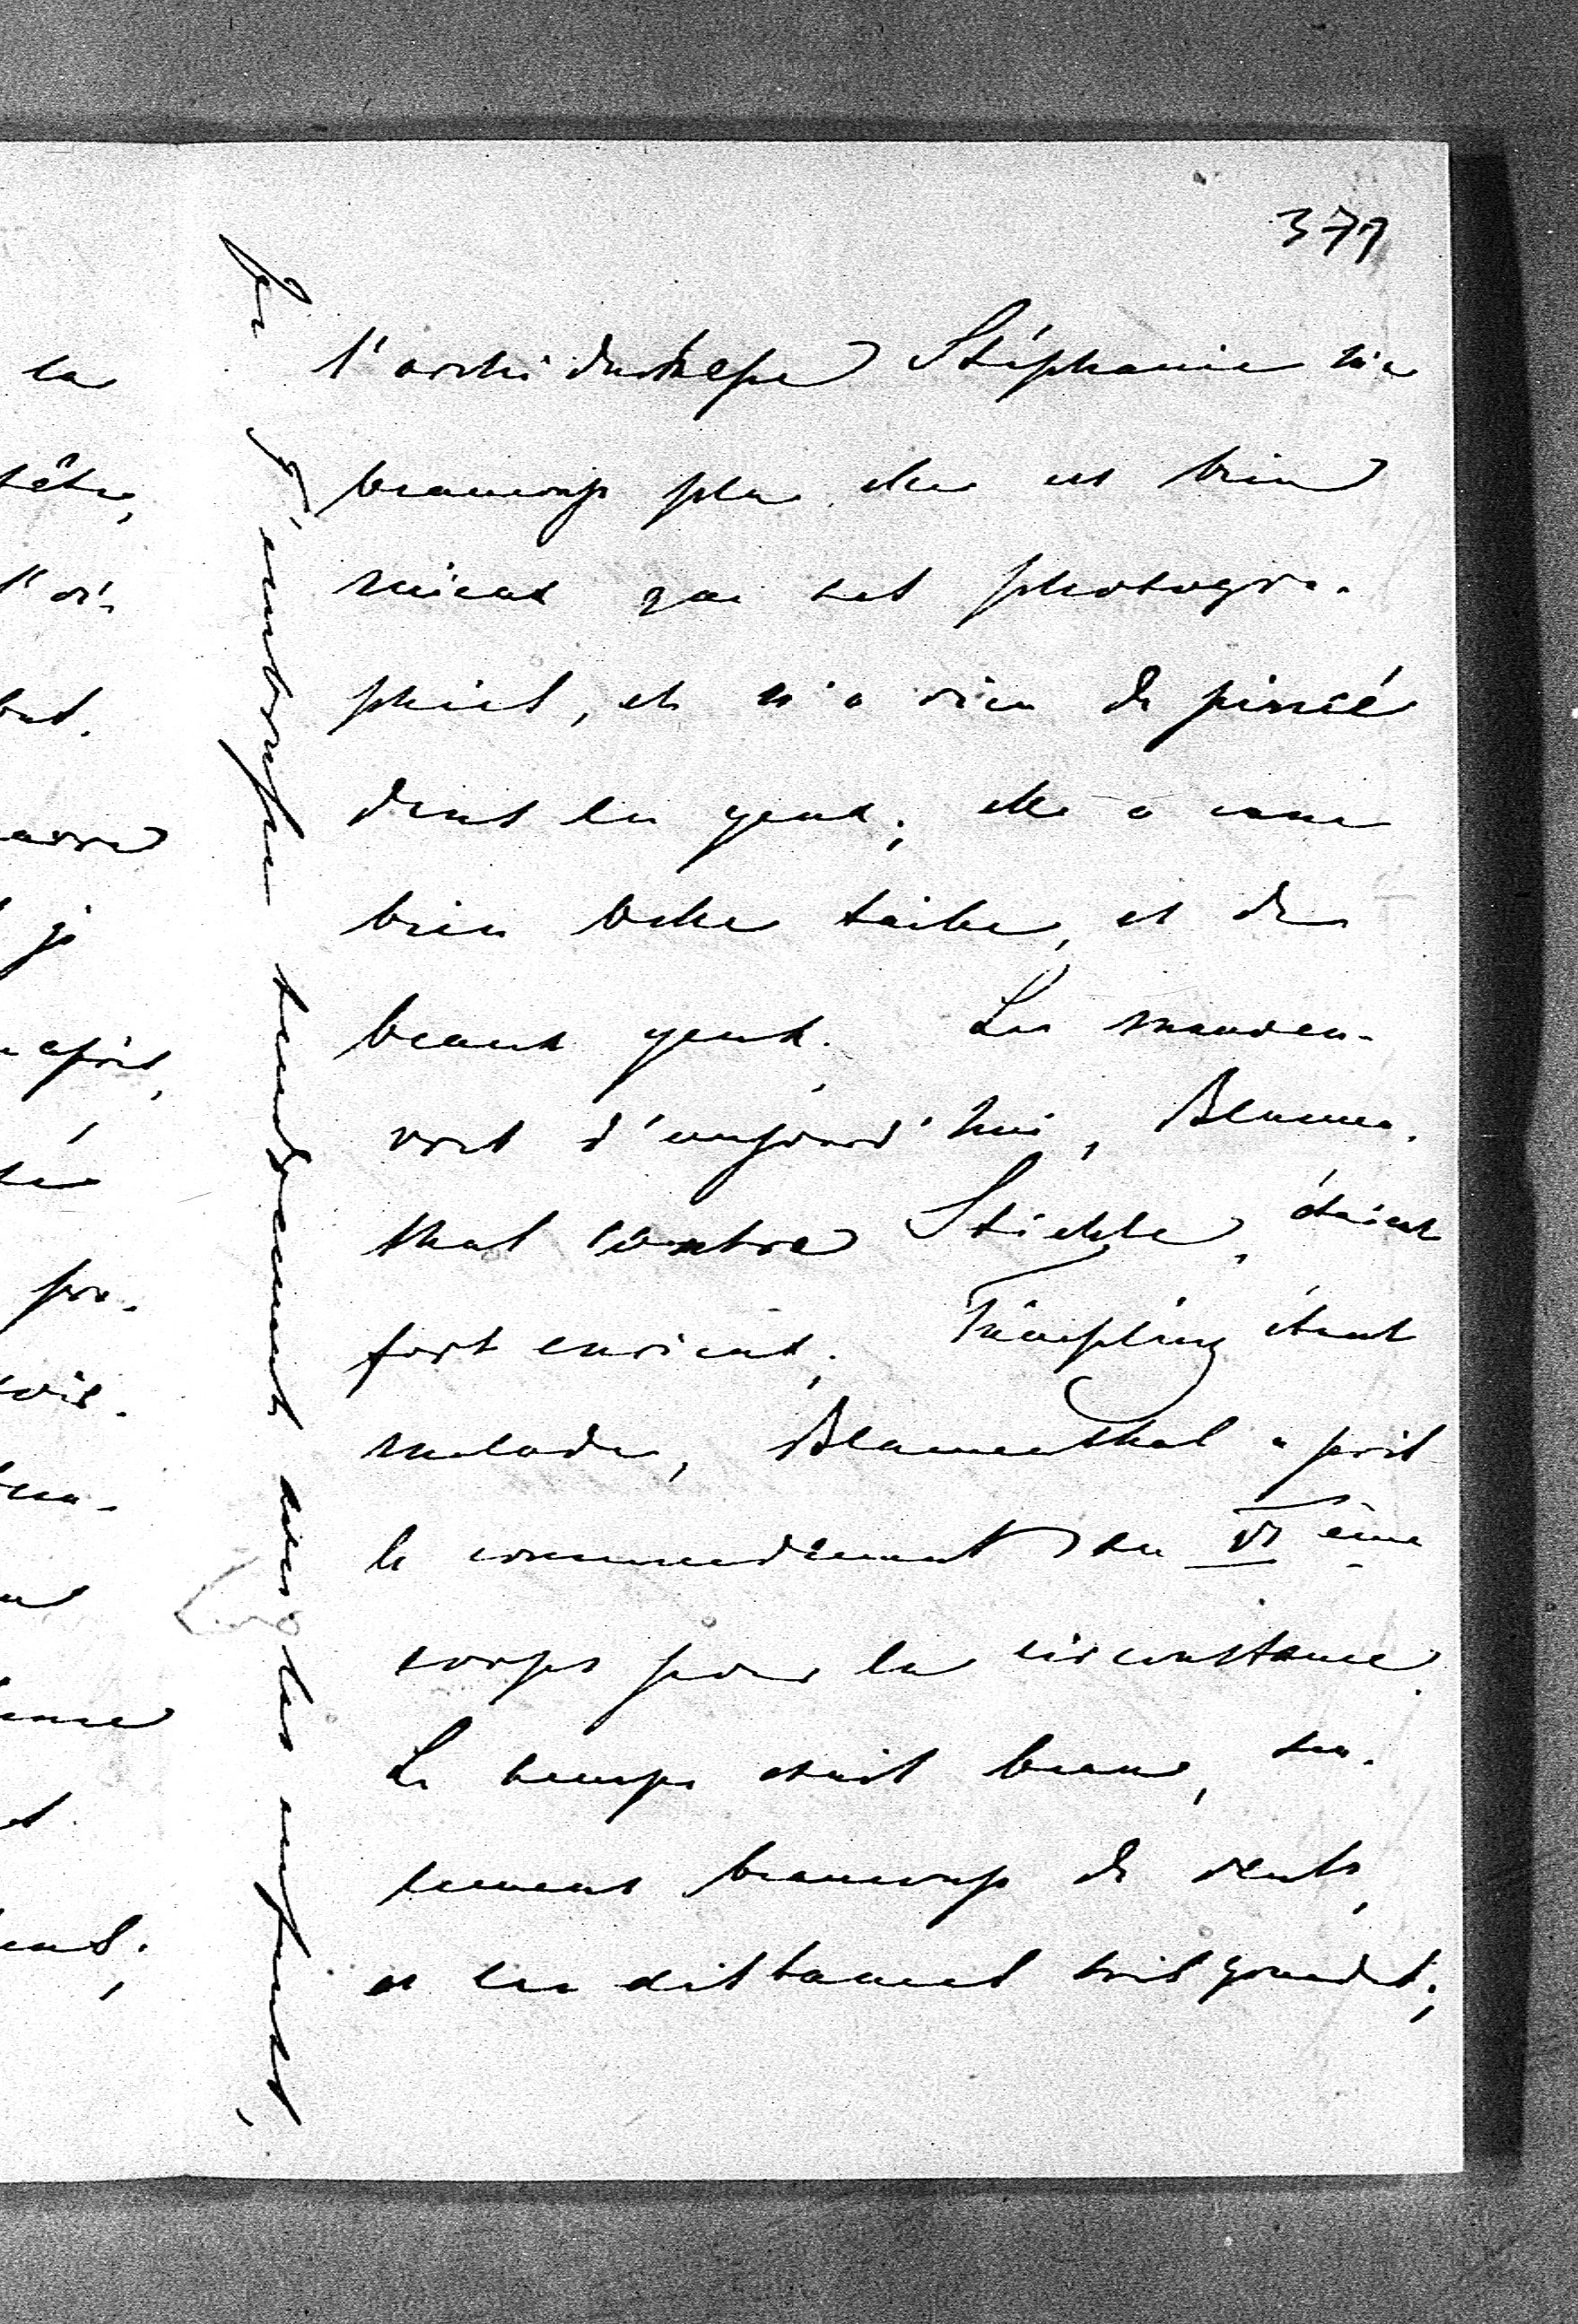 379
l'archiduchesse Stéphanie m'a
beaucoup plu, elle est bien
mieux que ses photogra-
phies, et n'a rien de pincé
dans les yeux; elle a une
bien belle taille, et de
beaux yeux. Les manœu-
vres d'aujourd'hui, Blumen-
thal contre Stiehle, étaient
fort curieux; Tümpling étant
malade, Blumenthal a pris
le commandement du VI ème
corps pour la circonstance.
Le temps était beau, seu-
lement beaucoup de vent,
et les distances très grandes;
Je t'embrasse tendrement avec les enfants,
la
tête,
bas.
je
après,